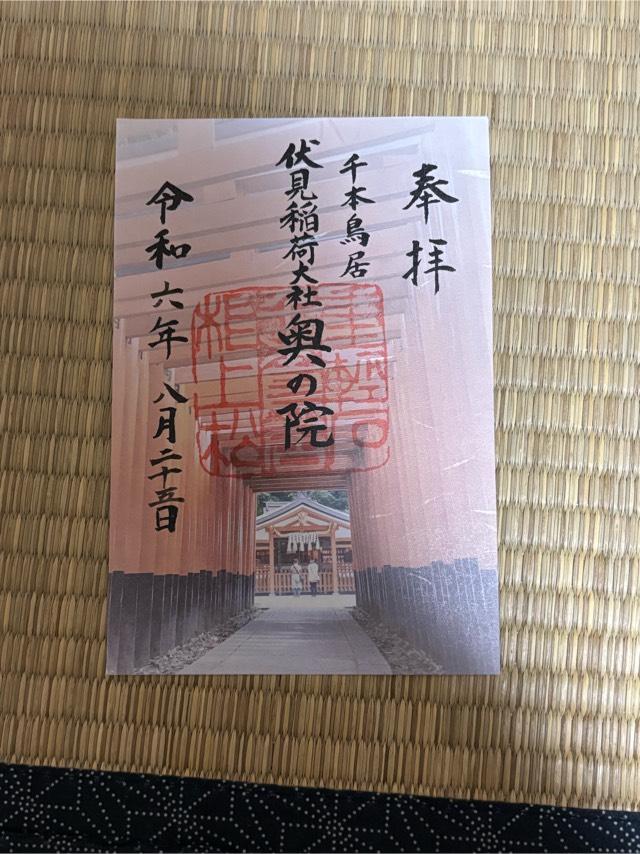 奉拝
千本鳥居
伏見稲荷大社奥の院
令和六年八月二十五日